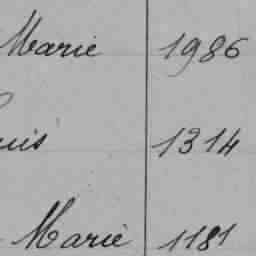 Marie 1986
uis 1314
Marie 1181